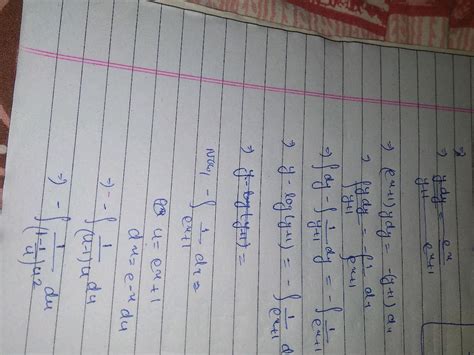 ⇒
⇒ y dy/(y+1) = e^x/(e^x+1)
⇒ (e^x+1) y dy = -(y+1) dx
⇒ ∫ y dy/(y+1) = -∫ 1/(e^x+1) dx
⇒ ∫dy - ∫ 1/(y+1) dy = -∫ 1/(e^x+1)
⇒ y - log(y+1) = -∫ 1/(e^x+1) d
⇒ y - log(y+1) =
Now, -∫ 1/(e^x+1) dx =
u = e^x+1
du = e^-x du
⇒ -∫ 1/((u-1)u) du
⇒ -∫ 1/((1-1/u)u²) du